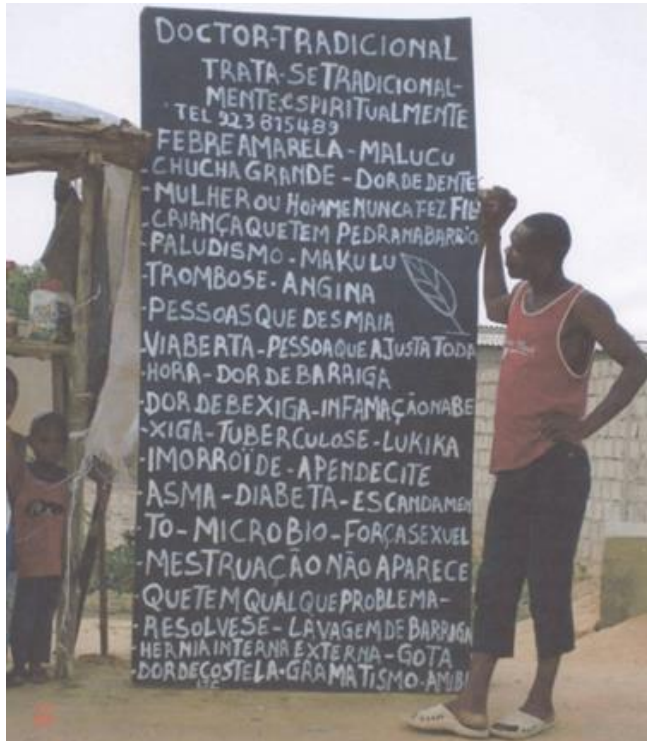 DOCTOR-TRADICIONAL
TRATA-SE TRADICIONAL-
MENTE: ESPIRITUALMENTE
TEL 923 815489
-FEBRE AMARELA-MALUCU
-CHUCHA GRANDE-DOR DE DENTE
-MULHER OU HOMME NUNCA FEZ FIL
-CRIANÇA QUE TEM PEDRA NA BARRIG
-PALUDISMO-MAKULU
-TROMBOSE-ANGINA
-PESSOAS QUE DESMAIA
-VIABERTA-PESSOA QUE AJUSTA TODA
-HORA-DOR DE BARRIGA
-DOR DE BEXIGA-INFAMAÇÃO NA BE
-XIGA-TUBERCULOSE-LUKIKA
-IMORROÏDE-APENDECITE
-ASMA-DIABETA-ESCANDAMEN
-TO-MICROBIO-FORÇA SEXUEL
-MESTRUAÇÃO NÃO APARECE
-QUE TEM QUALQUE PROBLEMA-
-RESOLVESE-LAVAGEM DE BARRIGA
-HERNIA INTERNA EXTERNA-GOTA
-DOR DE ÇOSTELA-GRAMATISMO-AMIBI